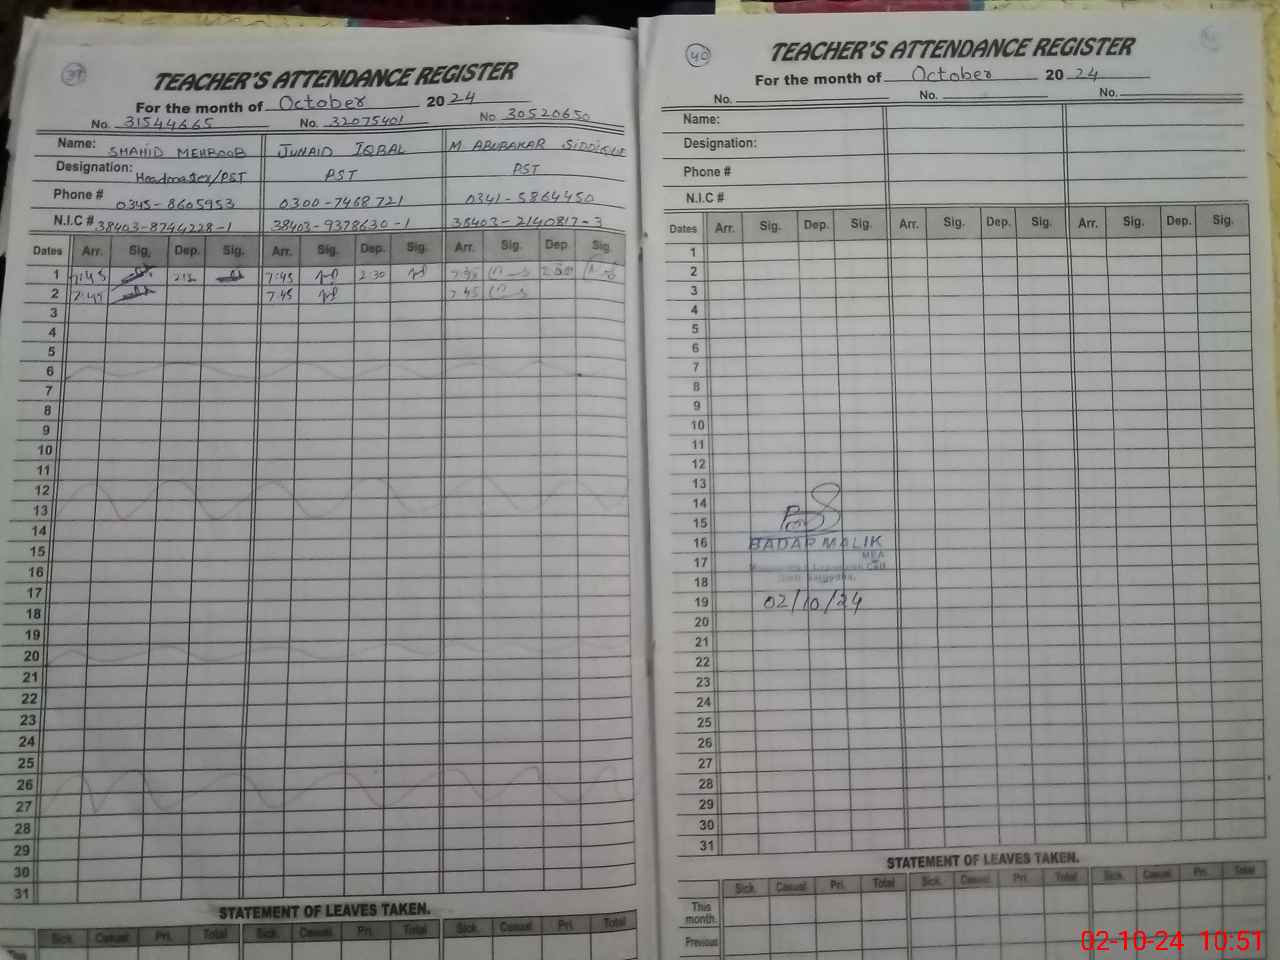 39
TEACHER'S ATTENDANCE REGISTER
For the month of October 2024
No. 31544665 No. 32075401 No 30520650
Name: SHAHID MEHBOOB JUNAID IQBAL M ABUBAKAR SIDDIQUE
Designation: Headmaster/PST PST PST
Phone # 0345-8605953 0300-7468721 0341-5864450
N.I.C # 38403-8744228-1 38403-9378630-1 38403-2140817-3
Dates Arr. Sig. Dep. Sig. Arr. Sig. Dep. Sig. Arr. Sig. Dep. Sig.
1 7:45 7:45 2:30
2 7:45 7:45 7:45
3
4
5
6
7
8
9
10
11
12
13
14
15
16
17
18
19
20
21
22
23
24
25
26
27
28
29
30
31
STATEMENT OF LEAVES TAKEN.
Sick. Casual Pri. Total Sick. Casual Pri. Total Sick. Casual Pri. Total
40
TEACHER'S ATTENDANCE REGISTER
For the month of October 2024
No. No. No.
Name:
Designation:
Phone #
N.I.C #
Dates Arr. Sig. Dep. Sig. Arr. Sig. Dep. Sig. Arr. Sig. Dep. Sig.
1
2
3
4
5
6
7
8
9
10
11
12
13
14
15
16 BADAR MALIK
17 MEA
18
19 02/10/24
20
21
22
23
24
25
26
27
28
29
30
31
STATEMENT OF LEAVES TAKEN.
Sick. Casual Pri. Total Sick. Casual Pri. Total Sick. Casual Pri. Total
This month.
Previous
02-10-24 10:51